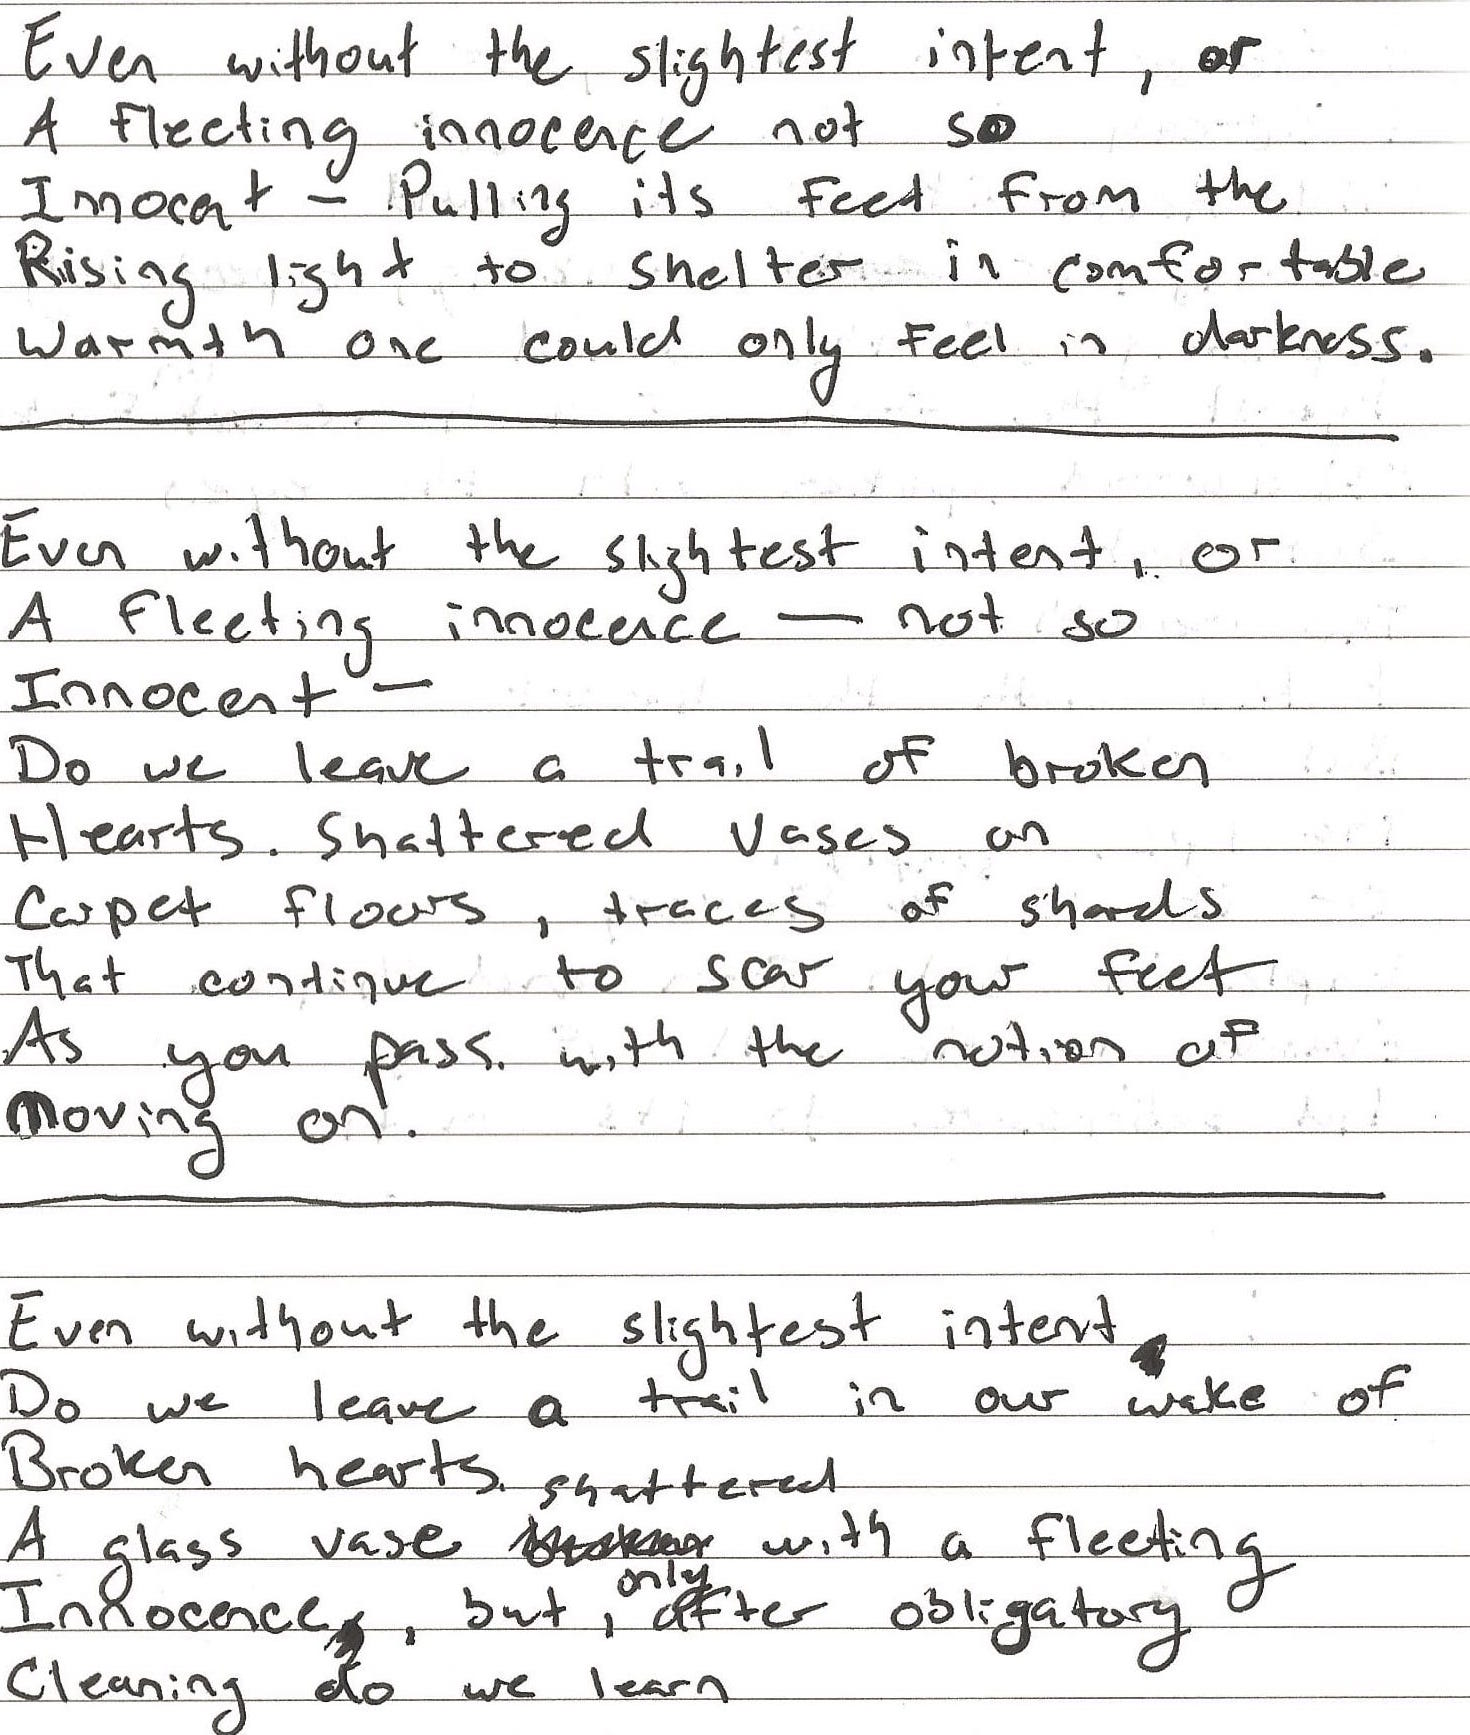 Even without the slightest intent, or
A fleeting innocence not so
Innocent - Pulling its feet from the
Rising light to shelter in comfortable
Warmth one could only feel in darkness.
Even without the slightest intent, or
A fleeting innocence — not so
Innocent -
Do we leave a trail of broken
Hearts. Shattered vases on
Carpet floors, traces of shards
That continue to scar your feet
As you pass. with the notion of
Moving on.
Even without the slightest intent
Do we leave a trail in our wake of
Broken hearts.
shattered
A glass vase with a fleeting
only
Innocence, but, after obligatory
Cleaning do we learn